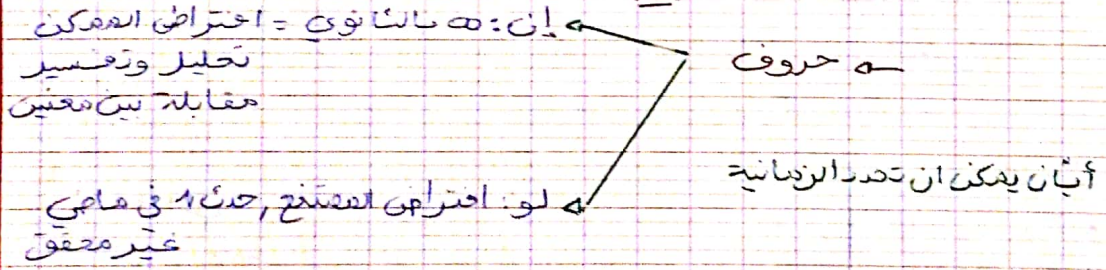 حروف
إن: ∞ بالثانوي = افتراض الممكن
تحليل وتفسير
مقابلة بين معنيين
أيان يمكن ان تحدد الزمانية
لو: افتراض الممتنع, حدث في ماضي
غير محقق